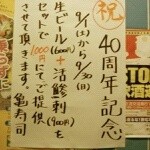 祝
40周年記念
9/1(土)から9/30(日)
生ビール(600円)+活鯵刺(900円)を
セットで1000円にてご提供
させて頂きます。亀寿司